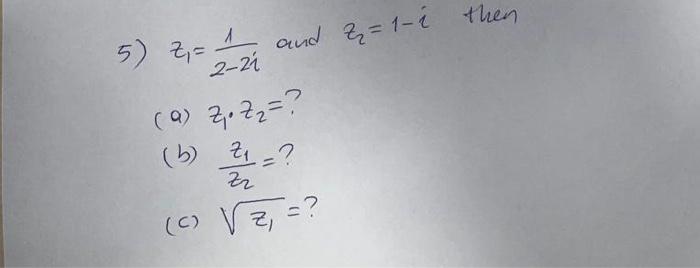 5) z₁ = 1/(2-2i) and z₂ = 1-i then
(a) z₁·z₂ = ?
(b) z₁/z₂ = ?
(c) √z₁ = ?